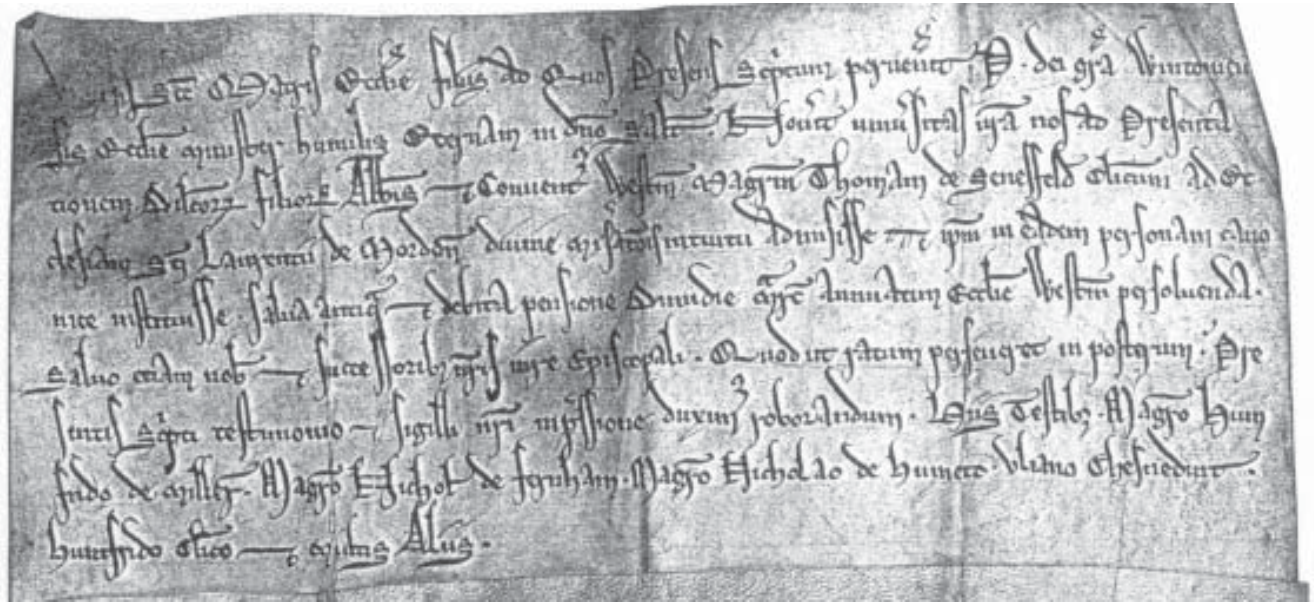 Sce Matris Ecclie filiis ad Quos Presens Scptum pervenerit P. dei gra Wintonien
sis Ecclie minister humilis Eternam in dno salt. Noverit universitas vra nos ad Presenta
tionem Dilcorꝝ filiorꝝ Abbis ⁊ Convent Westm Magrm Thomam de Senesfeld Clicum ad Ec
clesiam sci Laurentii de Mordon divine intuitu admisisse ⁊ ipm in eadem personam cano
nice instituisse. salva antiq ⁊ debita pensione dimidie marc annuatim Ecclie Westm persolvenda.
Salvo etiam nob ⁊ successorib nris iure Episcopali. Quod ut ratum perseveret in posterum. Pre
sentis scpti testimonio ⁊ sigilli nri inpssione duxim roborandum. Hiis Testib. Magro Hum
frido de Miller. Magro Nichol de fernham. Magro Nicholao de humeto. Chesneduit.
humfrido Clico ⁊ multis Aliis.